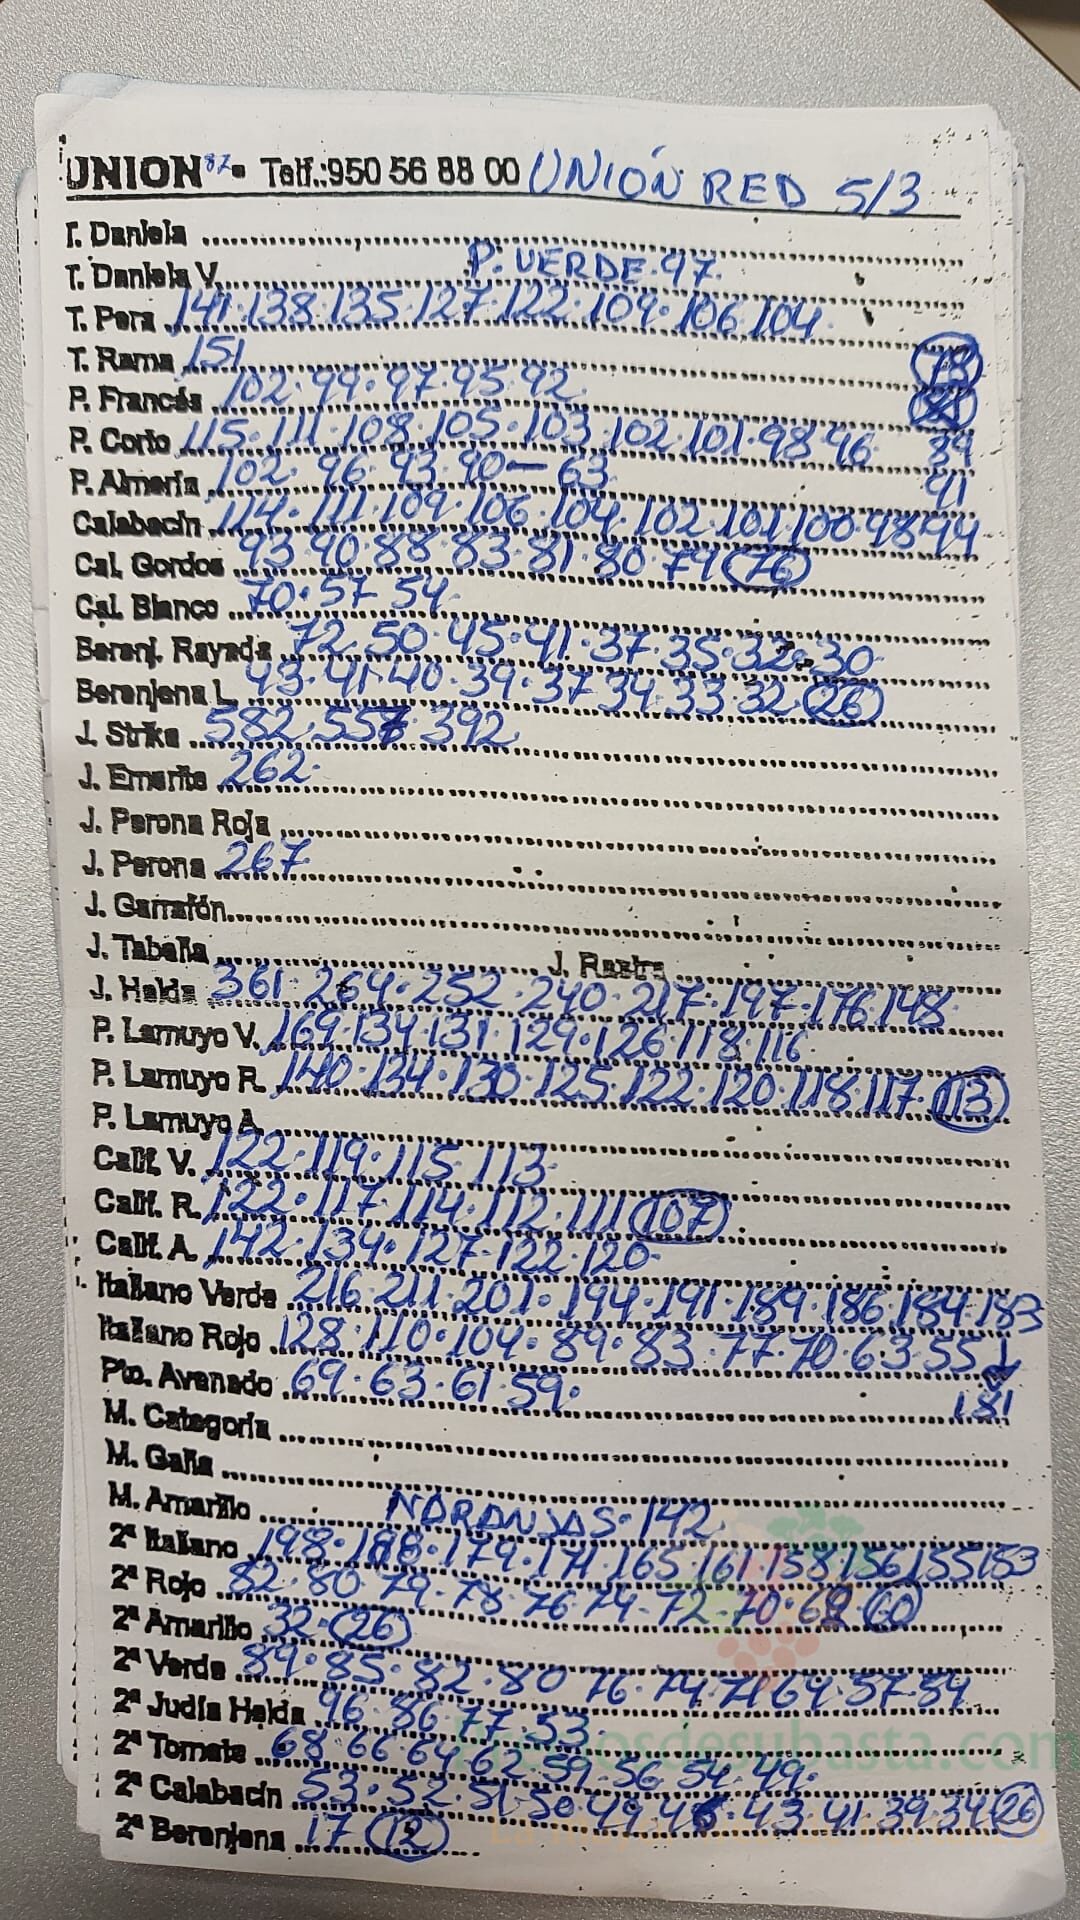 UNION 87 - Telf.:950 56 88 00 UNIÓN RED 5/3
T. Daniela
T. Daniela V. P. VERDE·97
T. Pera 141·138·135·127·122·109·106·104
T. Rama 151 78
P. Francés 102·99·97·95·92
P. Corto 115·111·108·105·103·102·101·98·96 89
P. Almería 102·96·93·90—63 91
Calabacín 114·111·109·106·104·102·101·100·98·94
Cal. Gordos 93·90·88·83·81·80·79 76
Cal. Blanco 70·57·54
Berenj. Rayada 72·50·45·41·37·35·32·30
Berenjena L. 43·41·40·39·37·34·33·32 26
J. Strike 582·557·392
J. Emerite 262
J. Perona Roja
J. Perona 267
J. Garrafón
J. Tabella J. Rastra
J. Helda 361·264·252·240·217·197·176·148
P. Lamuyo V. 169·134·131·129·126·118·116
P. Lamuyo R. 140·134·130·125·122·120·118·117 113
P. Lamuyo A.
Calif. V. 122·119·115·113
Calif. R. 122·117·114·112·111 107
Calif. A. 142·134·127·122·120
Italiano Verde 216·211·201·194·191·189·186·184·183
Italiano Rojo 128·110·104·89·83·77·70·63·55 ↓
Pto. Avenado 69·63·61·59 181
M. Categoría
M. Galia
M. Amarillo NARANJAS·142
2ª Italiano 198·188·179·171·165·161·158·156·155·153
2ª Rojo 82·80·79·78·76·74·72·70·68 60
2ª Amarillo 32 26
2ª Verde 89·85·82·80·76·74·71·64·57·54
2ª Judía Helda 96·86·77·53
2ª Tomate 68·66·64·62·59·56·54·49
2ª Calabacín 53·52·51·50·49·46·43·41·39·34 26
2ª Berenjena 17 12
Preciosdesubasta.com